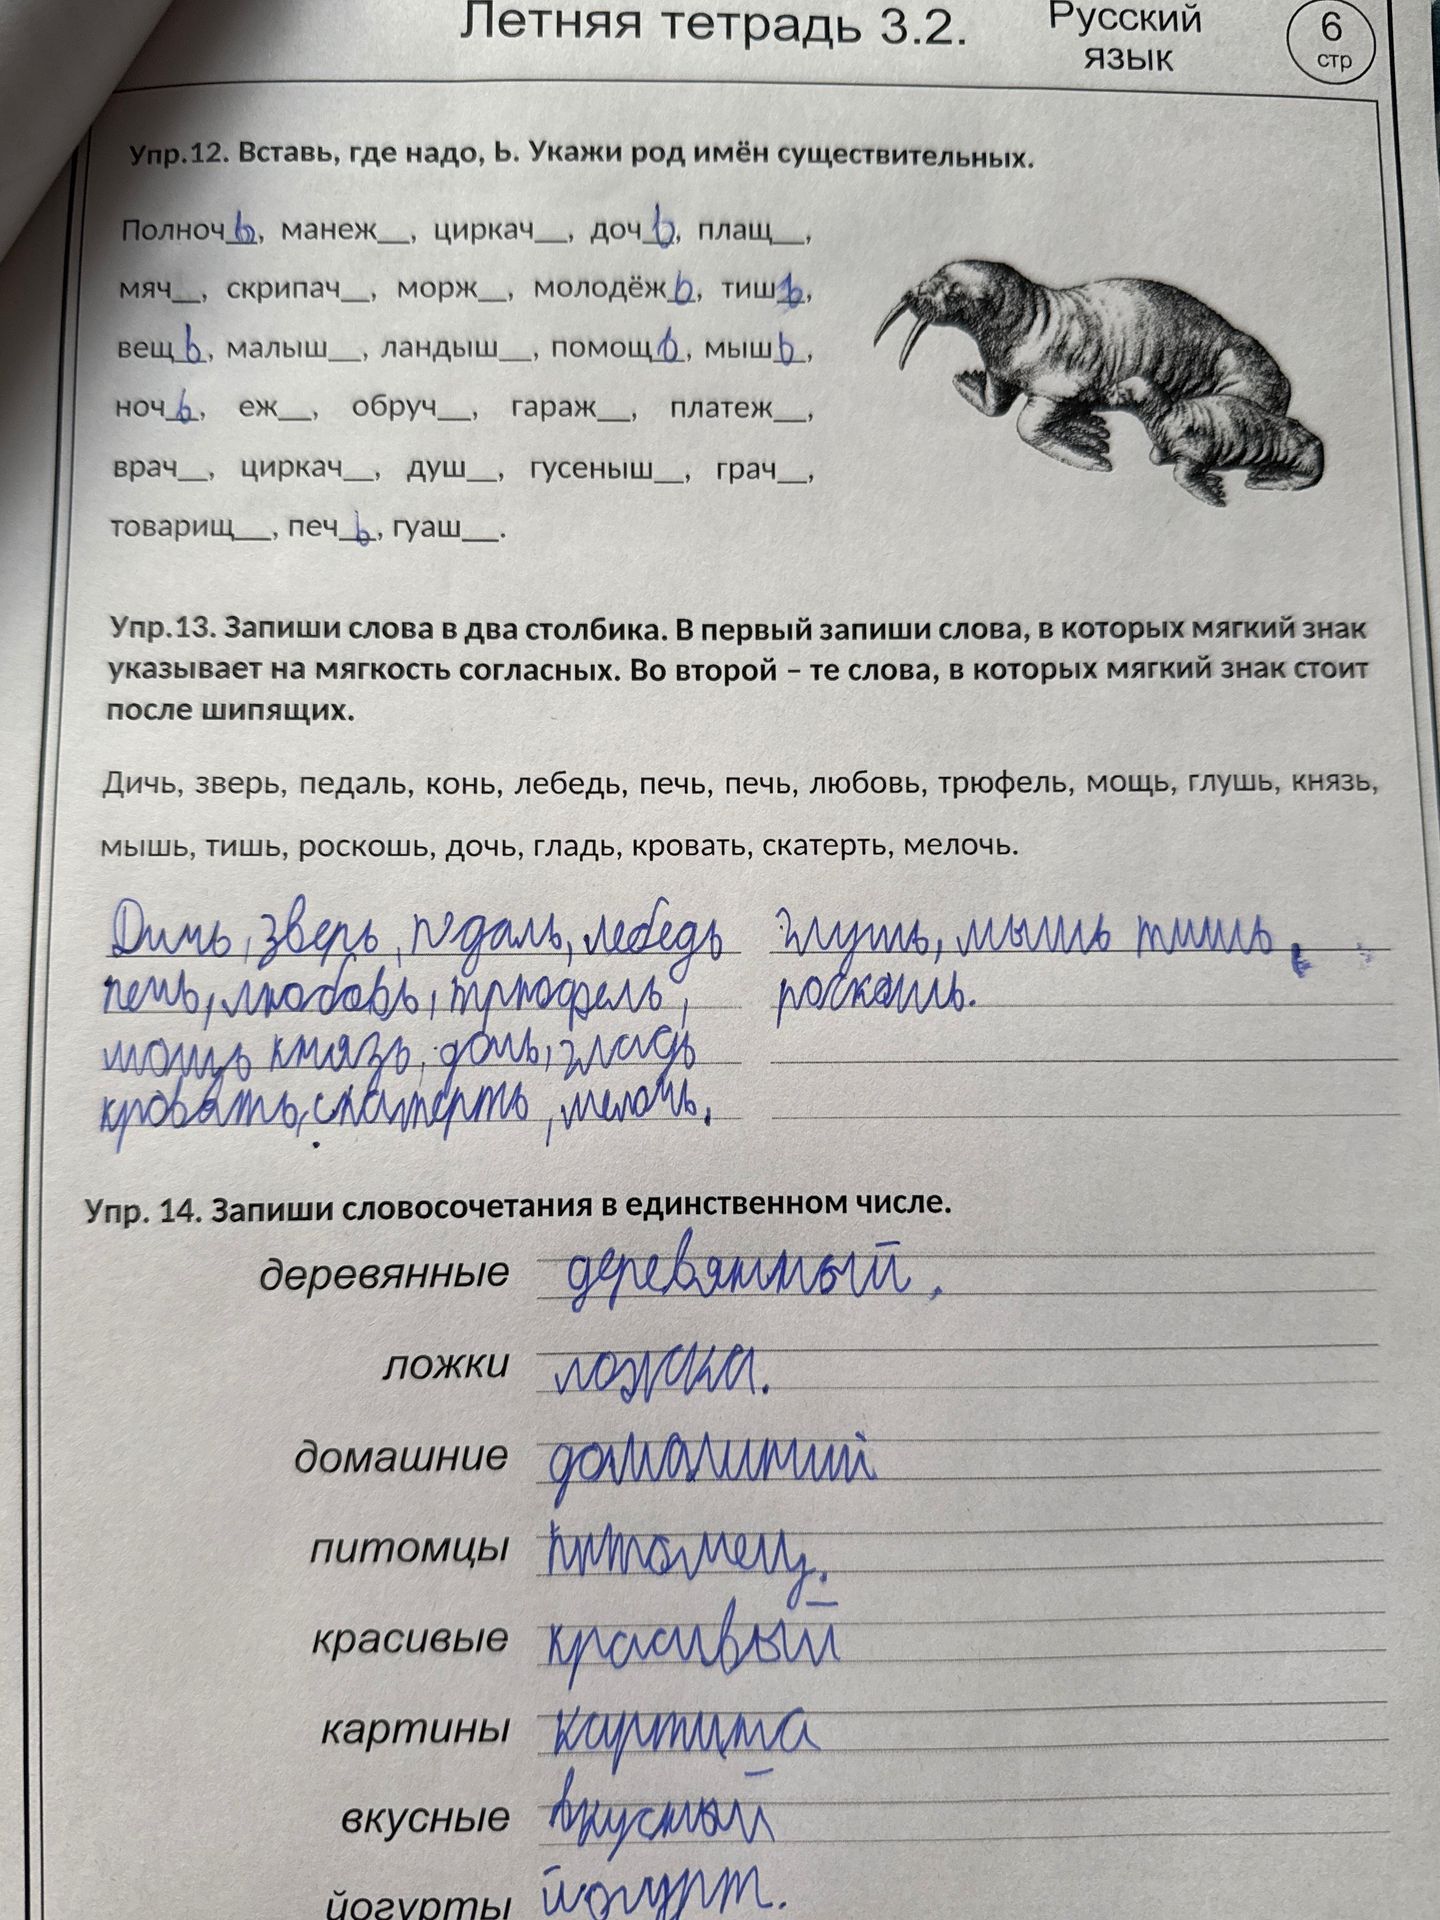 Летняя тетрадь 3.2.
Русский язык
6 стр
Упр.12. Вставь, где надо, Ь. Укажи род имён существительных.
Полноч_ь_, манеж__, циркач__, доч_ь_, плащ__,
мяч__, скрипач__, морж__, молодёж_ь_, тиш_ь_,
вещ_ь_, малыш__, ландыш__, помощ_ь_, мыш_ь_,
ноч_ь_, еж__, обруч__, гараж__, платеж__,
врач__, циркач__, душ__, гусеныш__, грач__,
товарищ__, печ_ь_, гуаш__.
Упр.13. Запиши слова в два столбика. В первый запиши слова, в которых мягкий знак
указывает на мягкость согласных. Во второй – те слова, в которых мягкий знак стоит
после шипящих.
Дичь, зверь, педаль, конь, лебедь, печь, печь, любовь, трюфель, мощь, глушь, князь,
мышь, тишь, роскошь, дочь, гладь, кровать, скатерть, мелочь.
Дичь, зверь, педаль, лебедь
печь, любовь, трюфель,
мощь князь, дочь, гладь
кровать, скатерть, мелочь.
глушь, мышь тишь,
роскошь.
Упр. 14. Запиши словосочетания в единственном числе.
деревянные деревянный,
ложки ложка.
домашние домашний
питомцы питомец.
красивые красивый
картины картина
вкусные вкусный
йогурты йогурт.